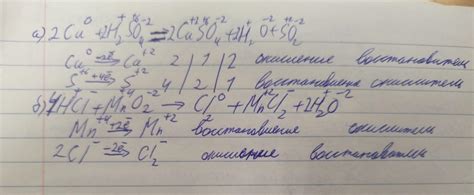 а) 2Cu⁰ + 2H₂⁺S⁺⁶O₄⁻² = 2Cu⁺²S⁺⁶O₄⁻² + 2H₂⁺O⁻² + S⁺⁴O₂⁻²
Cu⁰ -2e̅→ Cu⁺² 2 1 2 окисление восстановитель
S⁺⁶ +4e̅→ S⁺² 4 2 1 восстановление окислитель
б) 4HCl⁻ + Mn⁺⁴O₂⁻² → Cl⁰ + Mn⁺²Cl₂⁻ + 2H₂O⁻²
Mn⁺⁴ +2e̅→ Mn⁺² восстановление окислитель
2Cl⁻ -2e̅→ Cl₂⁻ окисление восстановитель